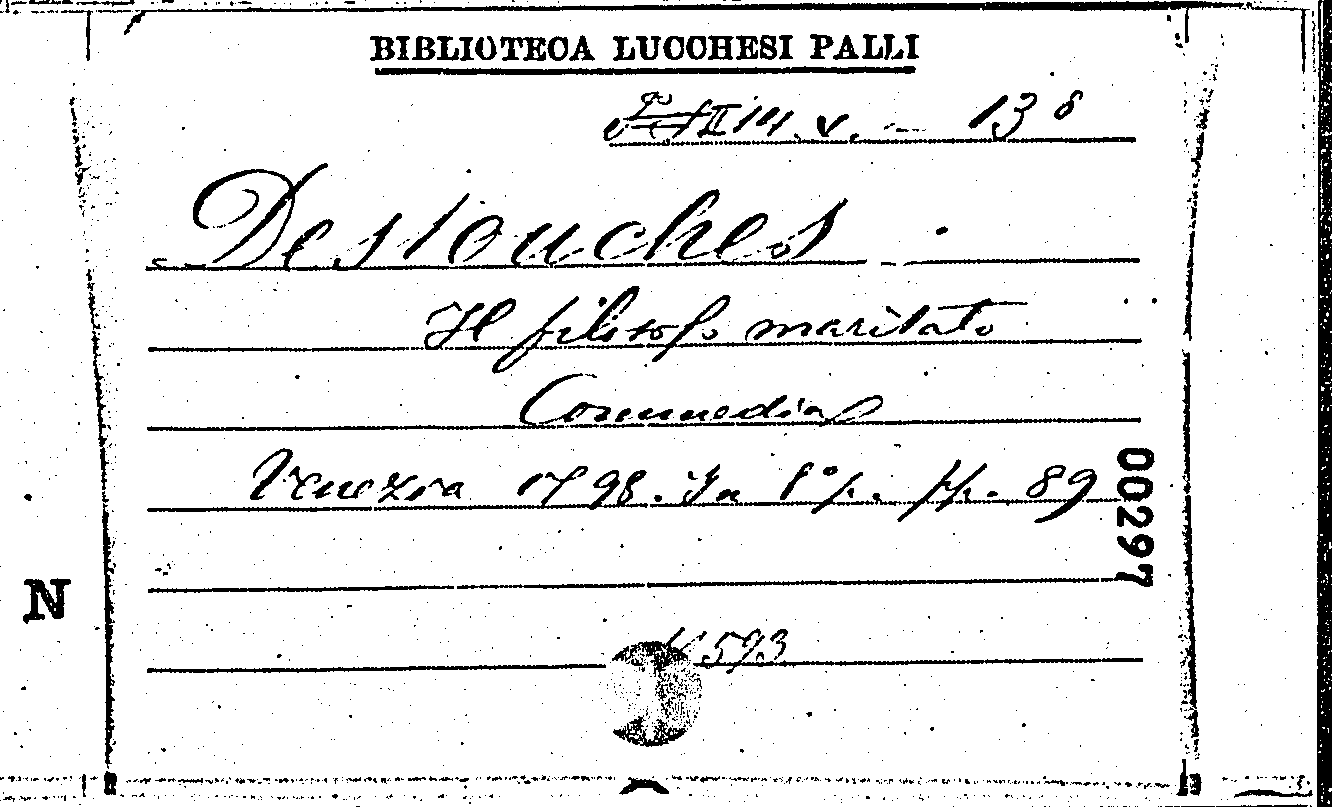 BIBLIOTECA LUCCHESI PALLI
II 14. V. — 13 8
Destouches
Il filosofo maritato
Commedia
Venezia 1798. In 8º p. pp. 89
00297
N
593